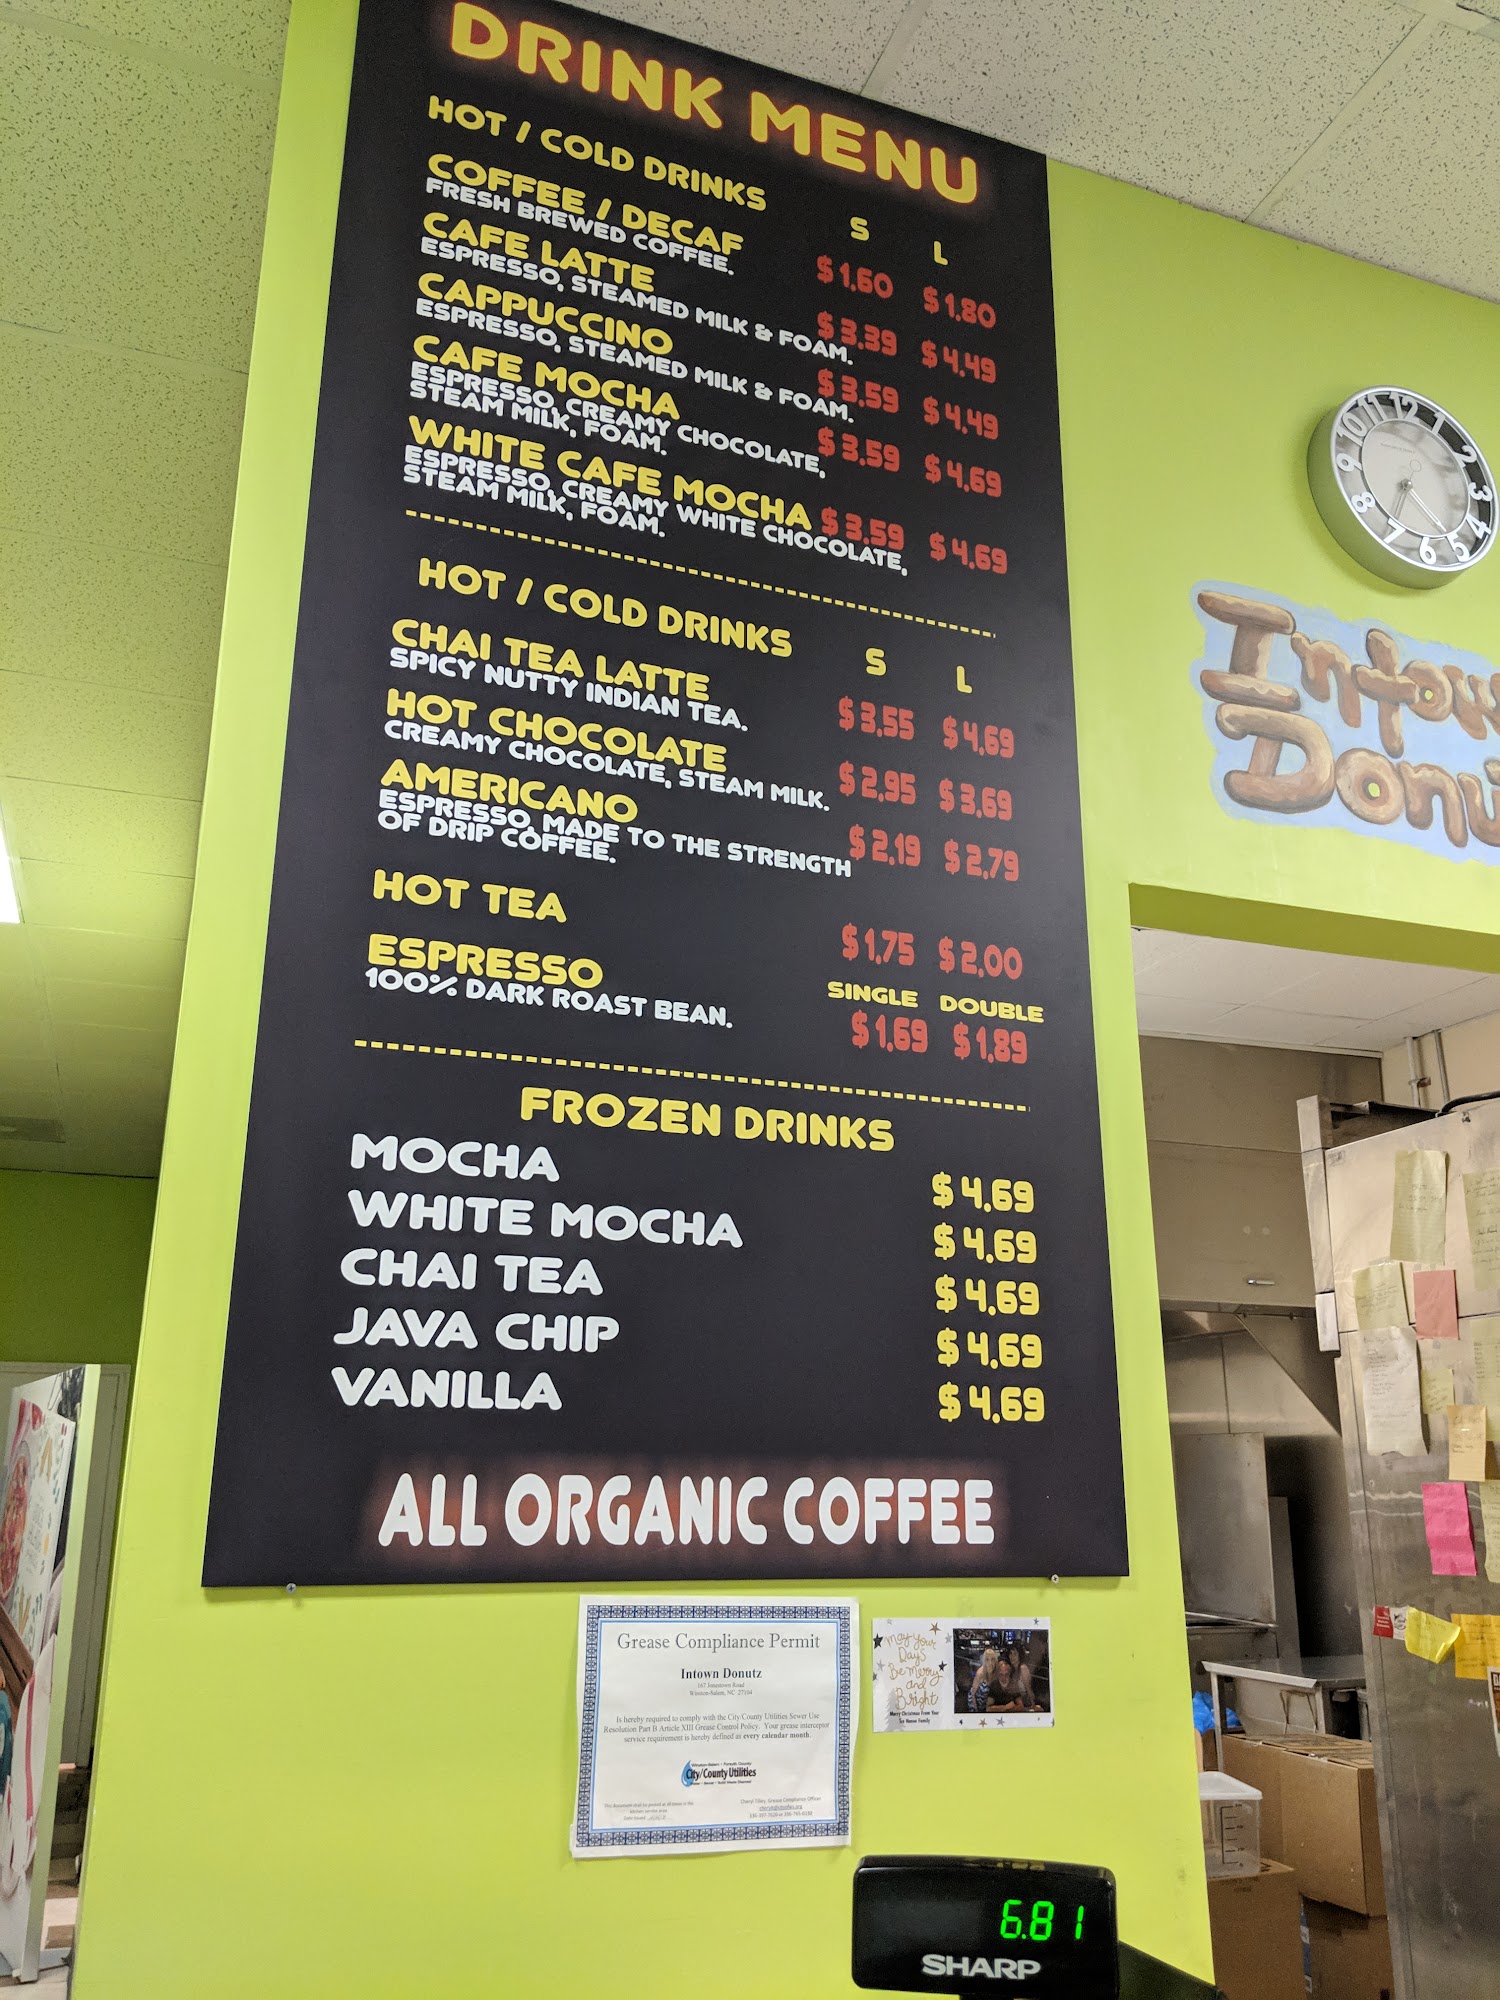 DRINK MENU
HOT / COLD DRINKS S L
COFFEE / DECAF $1.60 $1.80
FRESH BREWED COFFEE.
CAFE LATTE $3.39 $4.49
ESPRESSO, STEAMED MILK & FOAM.
CAPPUCCINO $3.59 $4.49
ESPRESSO, STEAMED MILK & FOAM.
CAFE MOCHA $3.59 $4.69
ESPRESSO, CREAMY CHOCOLATE,
STEAM MILK, FOAM.
WHITE CAFE MOCHA $3.59 $4.69
ESPRESSO, CREAMY WHITE CHOCOLATE,
STEAM MILK, FOAM.
HOT / COLD DRINKS S L
CHAI TEA LATTE $3.55 $4.69
SPICY NUTTY INDIAN TEA.
HOT CHOCOLATE $2.95 $3.69
CREAMY CHOCOLATE, STEAM MILK.
AMERICANO $2.19 $2.79
ESPRESSO, MADE TO THE STRENGTH
OF DRIP COFFEE.
HOT TEA $1.75 $2.00
SINGLE DOUBLE
ESPRESSO $1.69 $1.89
100% DARK ROAST BEAN.
FROZEN DRINKS
MOCHA $4.69
WHITE MOCHA $4.69
CHAI TEA $4.69
JAVA CHIP $4.69
VANILLA $4.69
ALL ORGANIC COFFEE
12 1 2 3 4 5 6 7 8 9 10 11
Intown
Donu
Grease Compliance Permit
Intown Donutz
167 Jonestown Road
Winston-Salem, NC 27104
Is hereby required to comply with the City/County Utilities Sewer Use
Resolution Part B Article XIII Grease Control Policy. Your grease interceptor
service requirement is hereby defined as every calendar month.
Winston-Salem • Forsyth County
City/County Utilities
Cheryl Tilley, Grease Compliance Officer
May Your
Days
Be Merry
and
Bright
Merry Christmas From Your
6.81
SHARP